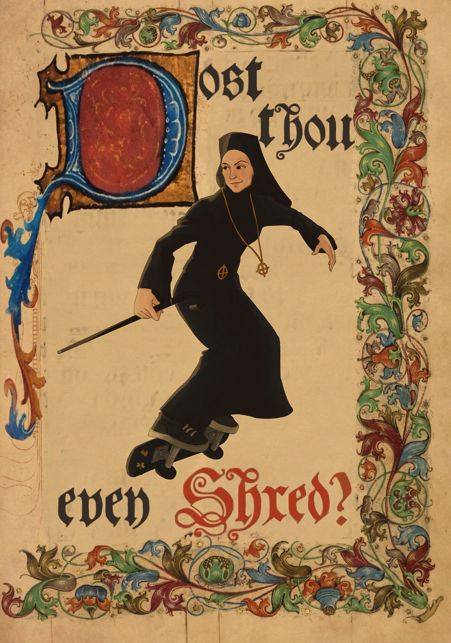 Dost
thou
even Shred?